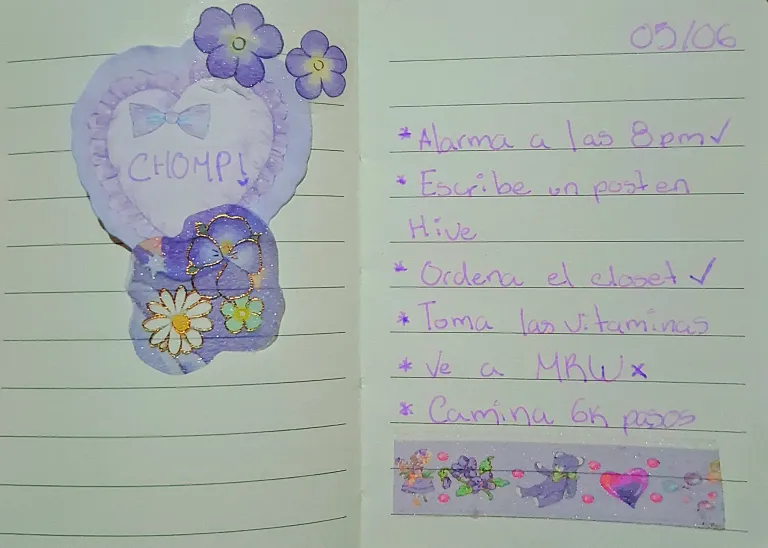 CHOMP!
05/06
* Alarma a las 8pm ✓
* Escribe un post en
Hive
* Ordena el closet ✓
* Toma las vitaminas
* Ve a MRW x
* Camina 6K pasos